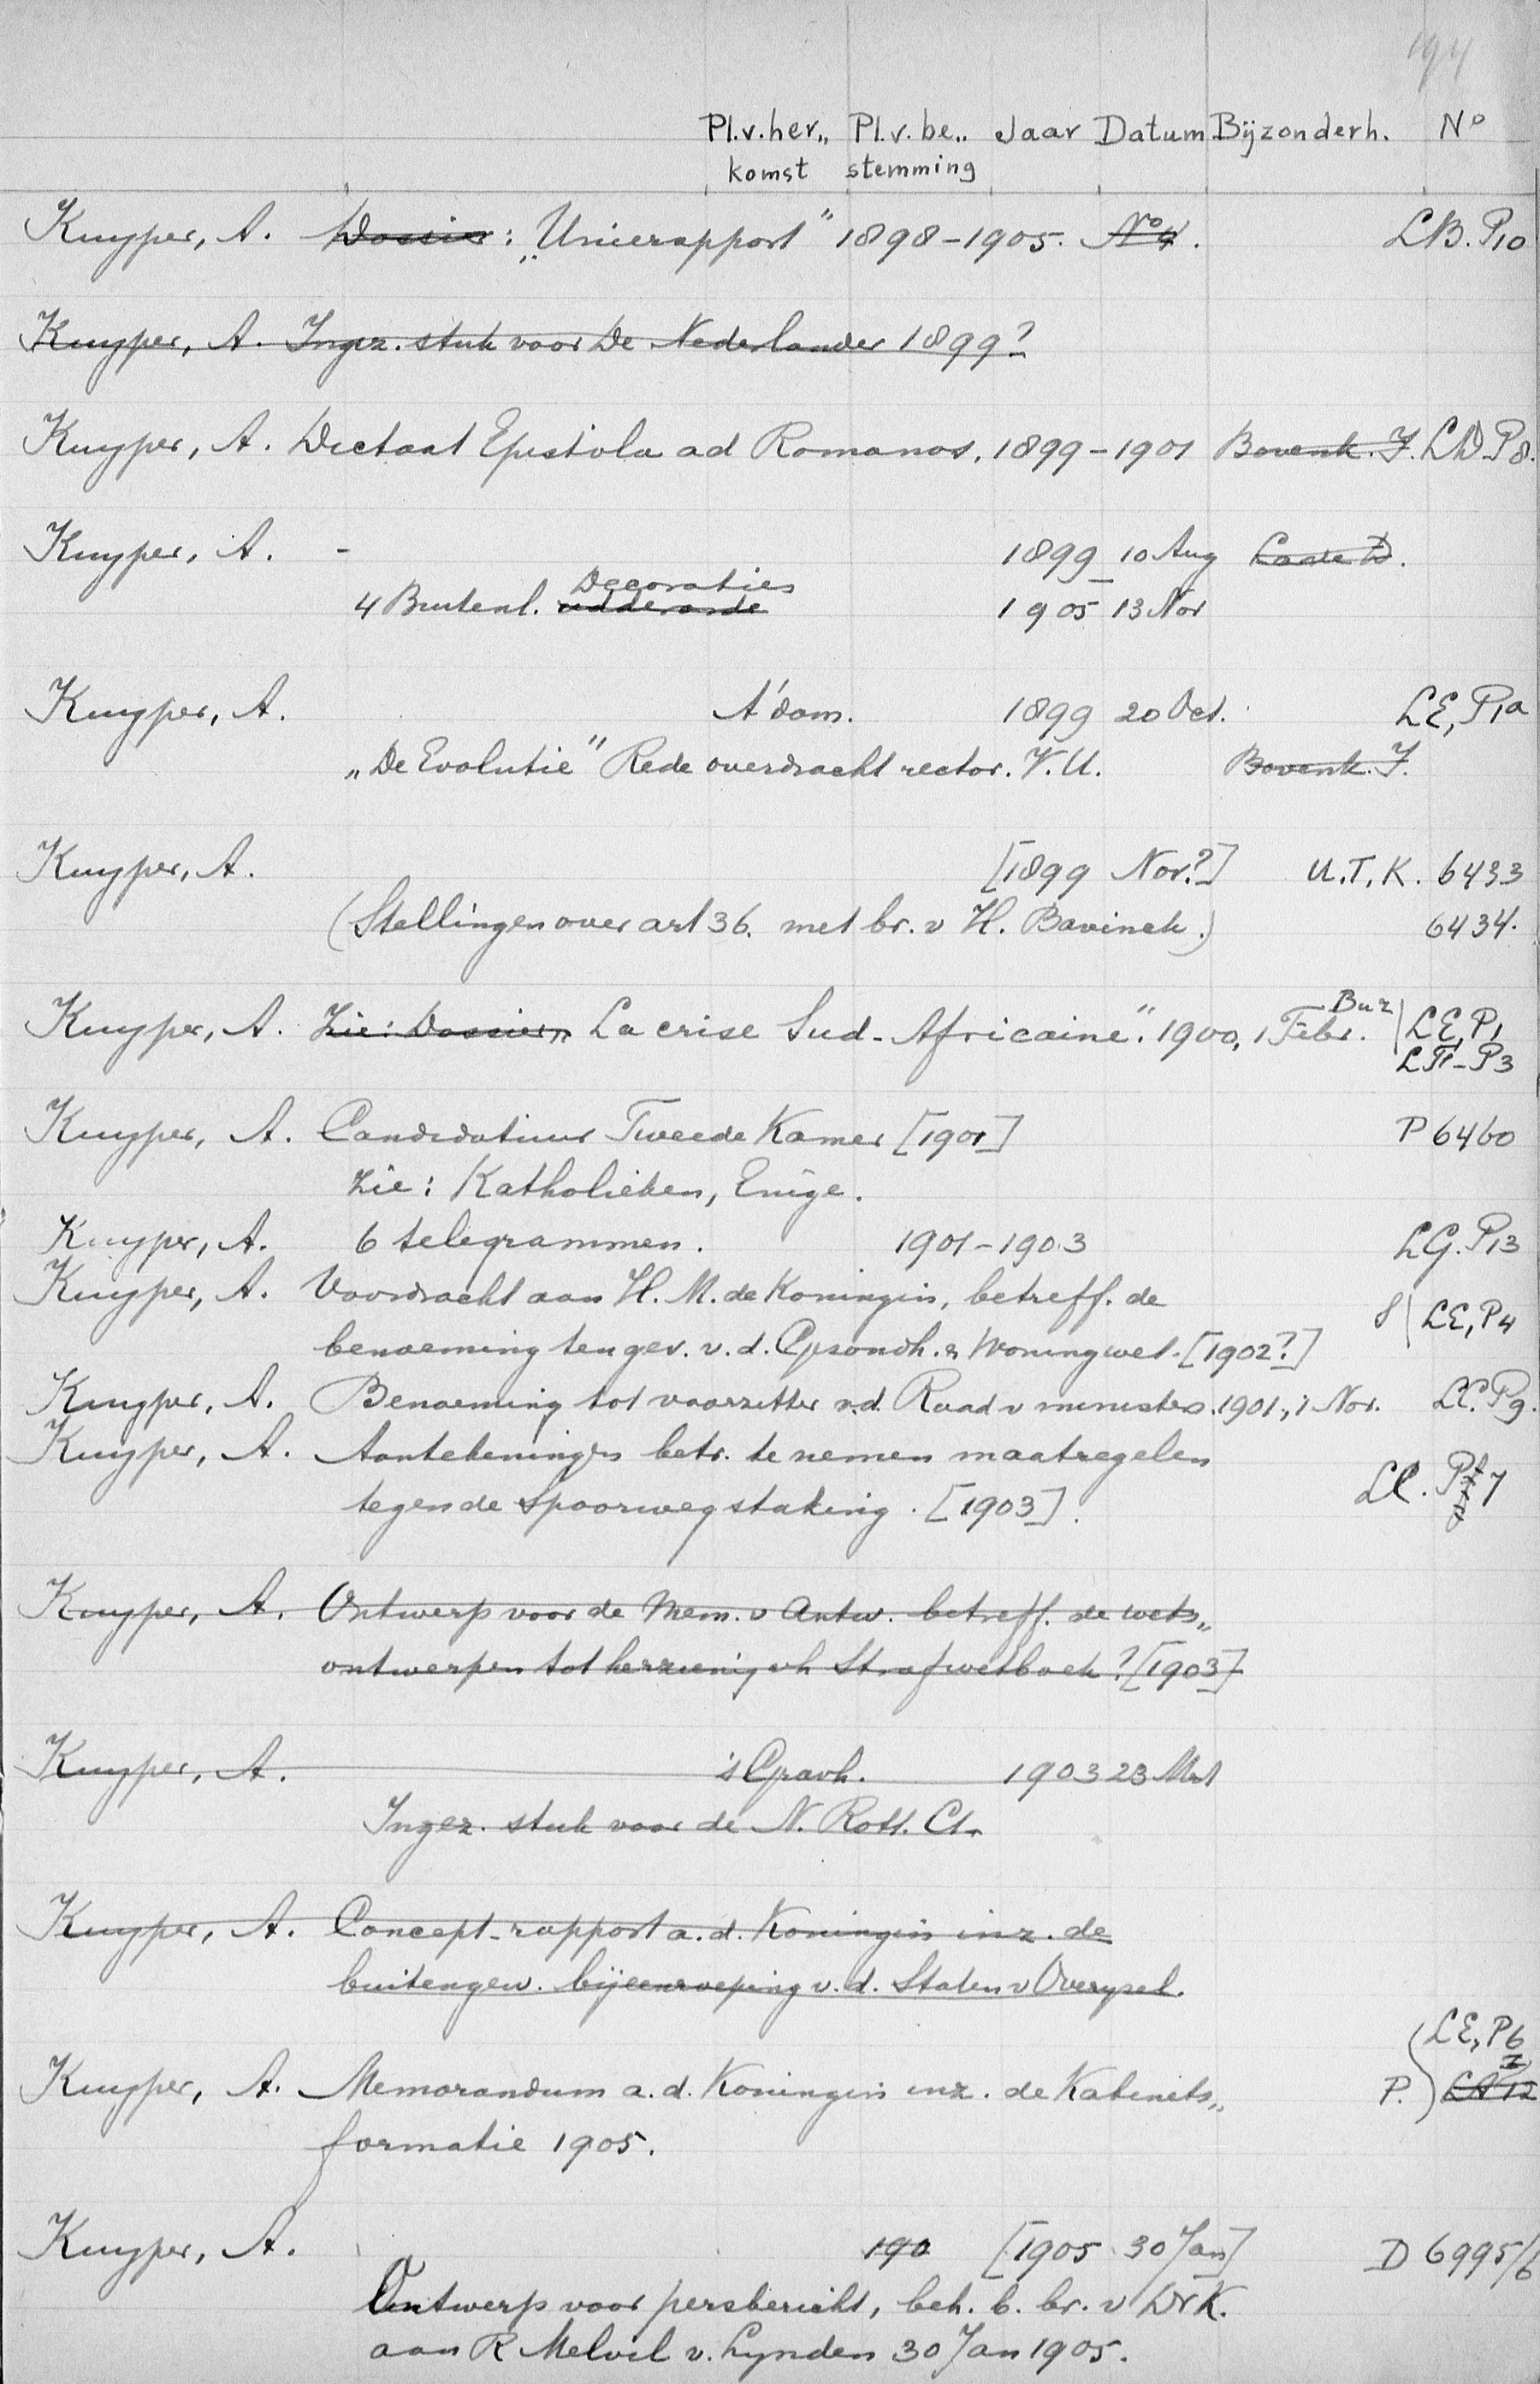 194
Pl.v.her„ Pl.v.be„ Jaar Datum Bijzonderh. No
komst stemming
Kuyper, A. Dossier: „Unierapport” 1898-1905. No 4. LB. P10
Kuyper, A. Ingez. stuk voor De Nederlander 1899?
Kuyper, A. Dictaat Epistola ad Romanos. 1899-1901 Bovenk. J. LD-P8.
Kuyper, A. - 1899 10 Aug Lade D.
Decoraties
4 Buitenl. ridderorde 1905 13 Nov
Kuyper, A. A'dam. 1899 20 Oct. LE, P1a
„De Evolutie” Rede overdracht rector. V.U. Bovenk. J.
Kuyper, A. [1899 Nov.?] U.T.K. 6433
(Stellingen over art 36. met br. v H. Bavinck.) 6434.
Buz
Kuyper, A. Zie: Dossier „La crise Sud-Africaine”. 1900, 1 Febr. LE, P1
LF-P3
Kuyper, A. Candidatuur Tweede Kamer [1901] P 6460
Zie: Katholieken, Enige.
Kuyper, A. 6 telegrammen. 1901-1903 LG. P13
Kuyper, A. Voordracht aan H.M. de Koningin, betreff. de
8 LE, P4
benoeming tengev. v.d. Gezondh. & Woningwet. [1902?]
Kuyper, A. Benoeming tot voorzitter v.d. Raad v ministers. 1901, 1 Nov. LC. P9.
Kuyper, A. Aantekeningen betr. te nemen maatregelen
tegen de spoorwegstaking. [1903]. LC. P 7
Kuyper, A. Ontwerp voor de Mem. v Antw. betreff. de wets„
ontwerpen tot herziening vh Strafwetboek? [1903]
Kuyper, A. 's Gravh. 1903 23 Mrt
Ingez. stuk voor de N. Rott. Ct.
Kuyper, A. Concept-rapport a.d. Koningin inz. de
buitengew. bijeenroeping v.d. Staten v Overysel.
LE, P6
Kuyper, A. Memorandum a.d. Koningin inz. de Kabinets„ P. LA 12
formatie 1905.
Kuyper, A. 190 [1905 30 Jan] D 6995/6
Ontwerp voor persbericht, beh. b. br. v Dr K.
aan R Melvil v. Lynden 30 Jan 1905.